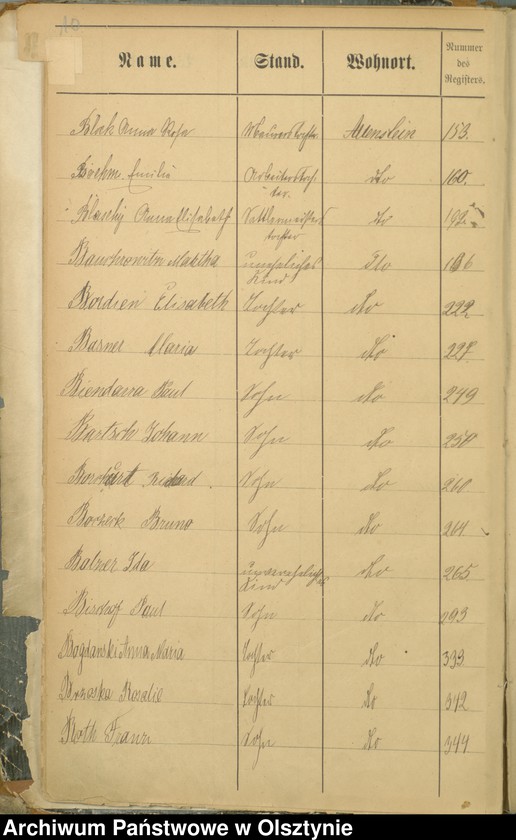 10
Name. Stand. Wohnort. Nummer des Registers.
Blak Anna Rosa Maurerstochter Allenstein 153.
Boehm Emilie Arbeiterstoch- do 160.
ter.
Anna Elisabeth Sattlermeisters do 192
tochter
Martha uneheliches do 196
Kind
Bordien Elisabeth Tochter do 222
Basner Maria Tochter do 227.
Biendara Paul Sohn do 249
Bartsch Johann Sohn do 250
Sohn do 260
Boczeck Bruno Sohn do 264
Balzer Ida do 265
Kind
Bischof Paul Sohn do 293
Bogdanski Anna Maria Tochter do 333
Brzoska Rosalie Tochter do 342
Both Franz Sohn do 344
Archiwum Państwowe w Olsztynie